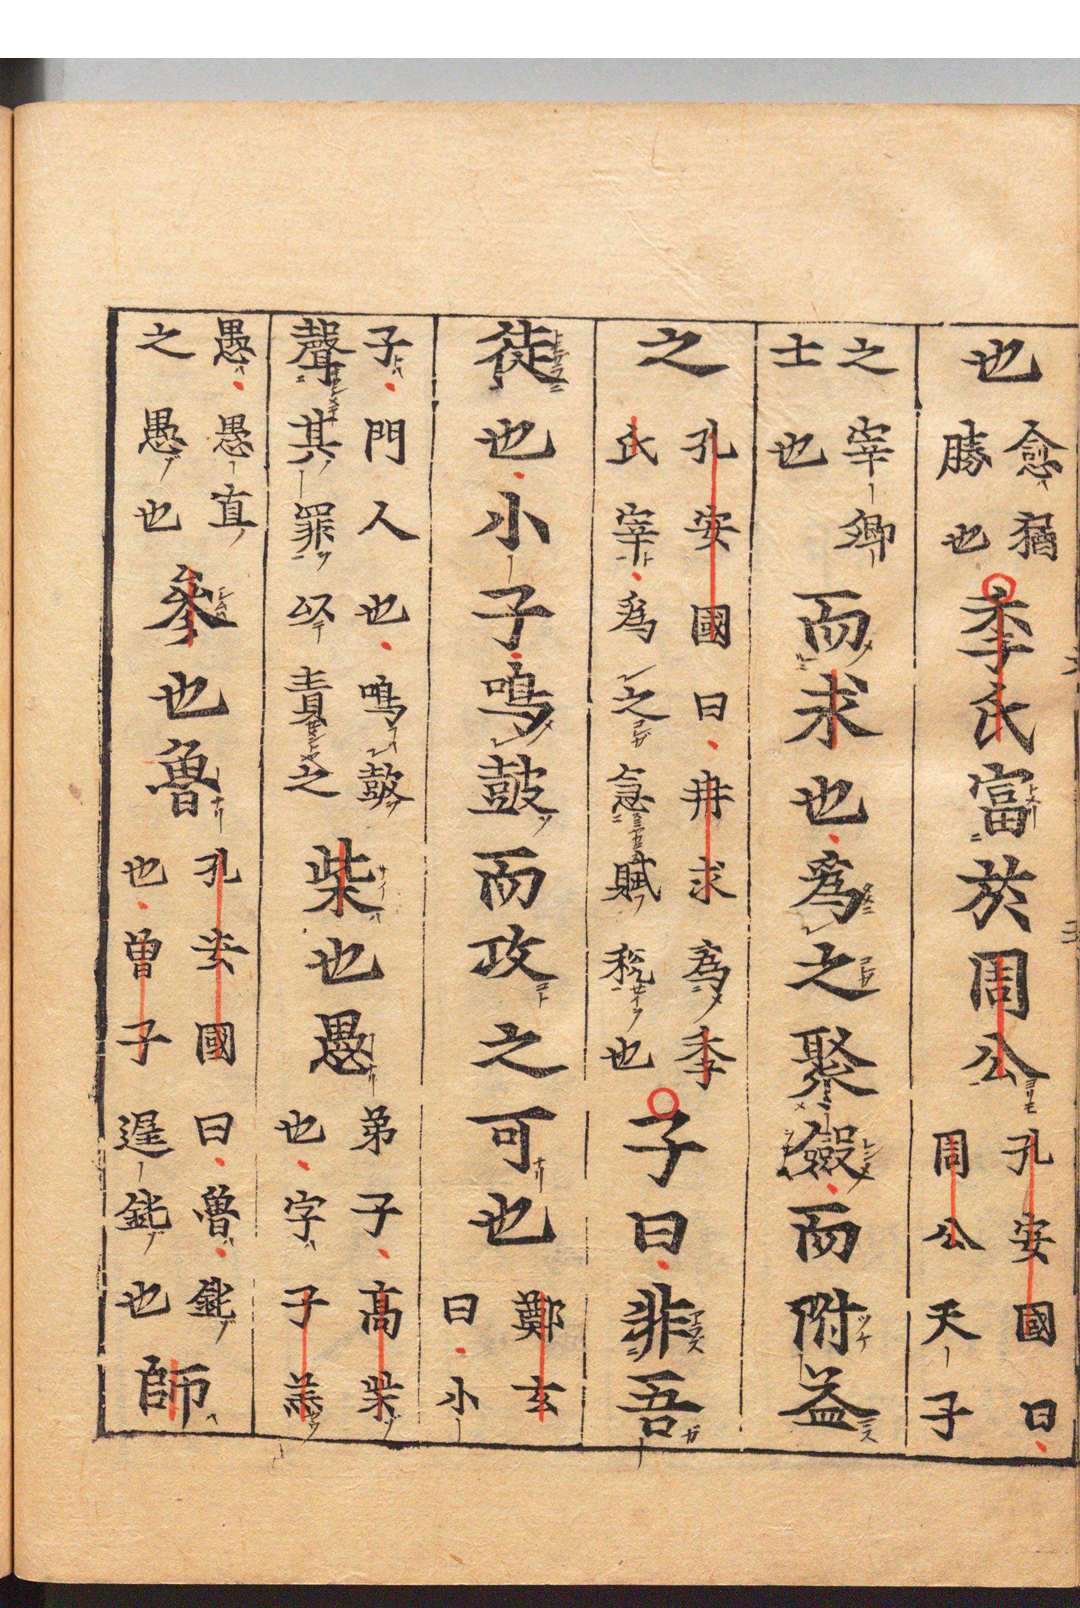 也愈猶勝也季氏富於周公孔安國曰周公天子
之宰卿士也而求也為之聚斂而附益
之孔安國曰冉求為季氏宰為之急賦稅也子曰非吾
徒也小子鳴鼓而攻之可也鄭玄曰小
子門人也鳴鼓聲其罪以責之柴也愚弟子高柴也字子羔
愚愚直之愚也參也魯孔安國曰魯鈍也曽子遲鈍也師